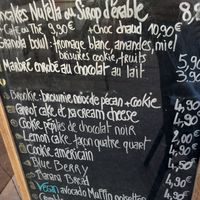 Pancakes Nutella ou Sirop d'érable 8,
+ Café ou Thé 9,90€ + Choc chaud 10,90€
Granola bowl: fromage blanc, amandes, miel
brisures cookie, fruits 5,90€
Marbré enrobé au chocolat au lait 3,90€
Brookie: brownie noix de pécan + cookie 4,90€
Carrot cake et sa cream cheese 4,90€
Cookie pépites de chocolat noir 4,90
Lemon cake façon quatre quart 2,00€
Cookie américain 4,90€
Blue Berry 4,50€
Banana Bread 4,90€
Vegan avocado Muffin noisettes 4,90